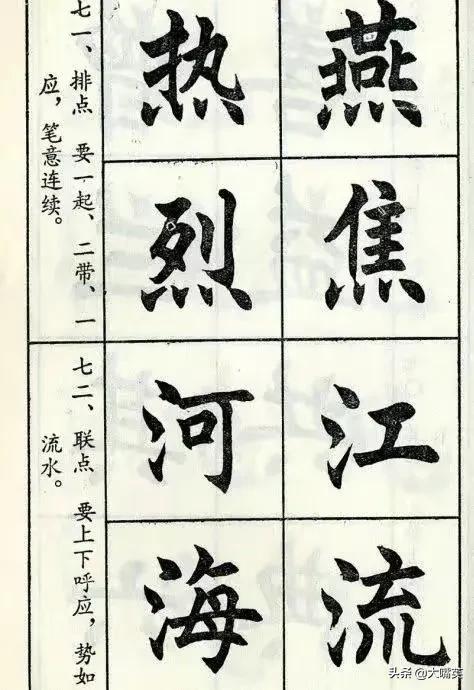 燕焦
热烈
七一、排点 要一起、二带、一
应，笔意连续。
江流
河海
七二、联点 要上下呼应，势如
流水。
头条@大嘴英